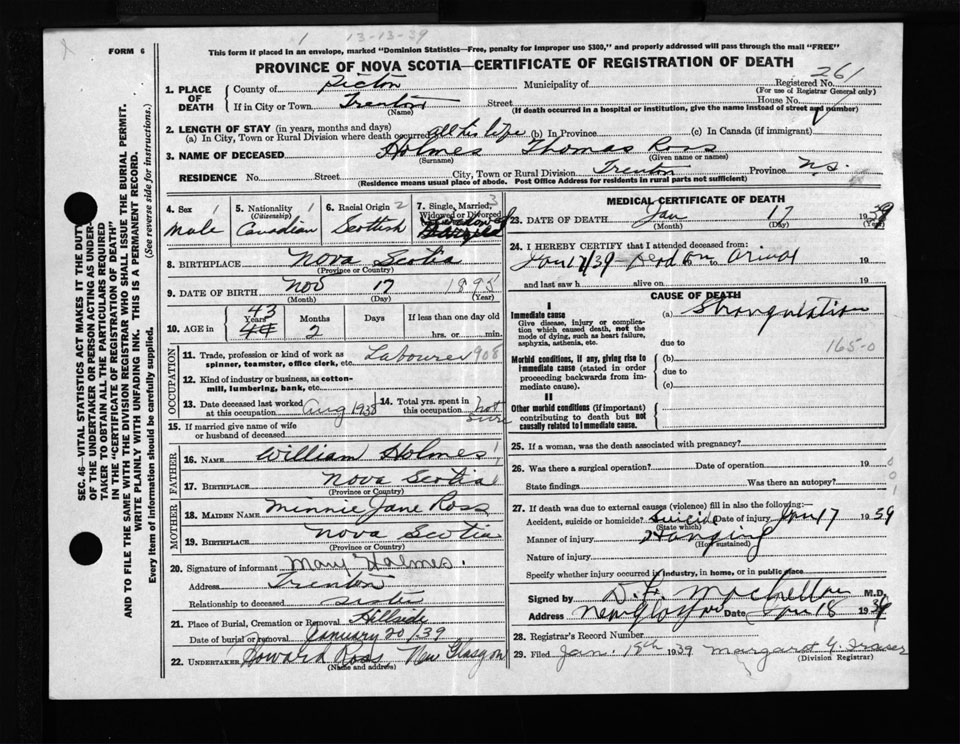 13-13-39
FORM 6
This form if placed in an envelope, marked "Dominion Statistics—Free, penalty for improper use $300," and properly addressed will pass through the mail "FREE"
PROVINCE OF NOVA SCOTIA—CERTIFICATE OF REGISTRATION OF DEATH
SEC. 46—VITAL STATISTICS ACT MAKES IT THE DUTY
OF THE UNDERTAKER OR PERSON ACTING AS UNDER-
TAKER TO OBTAIN ALL THE PARTICULARS REQUIRED
IN THE "CERTIFICATE OF REGISTRATION OF DEATH"
AND TO FILE THE SAME WITH THE DIVISION REGISTRAR WHO SHALL ISSUE THE BURIAL PERMIT.
WRITE PLAINLY WITH UNFADING INK. THIS IS A PERMANENT RECORD.
Every item of information should be carefully supplied. (See reverse side for instructions.)
1. PLACE OF DEATH
County of Pictou Municipality of Registered No. 261
(For use of Registrar General only)
If in City or Town Trenton Street House No.
(Name) (If death occurred in a hospital or institution, give the name instead of street and number)
2. LENGTH OF STAY (in years, months and days)
(a) In City, Town or Rural Division where death occurred all his life (b) In Province (c) In Canada (if immigrant)
3. NAME OF DECEASED Holmes Thomas Ross
(Surname) (Given name or names)
RESIDENCE No. Street City, Town or Rural Division Trenton Province N.S.
(Residence means usual place of abode. Post Office Address for residents in rural parts not sufficient)
4. Sex 1
Male
5. Nationality 1
(Citizenship)
Canadian
6. Racial Origin 2
Scottish
7. Single, Married, 3
Widowed or Divorced
8. BIRTHPLACE Nova Scotia
(Province or Country)
9. DATE OF BIRTH Nov 17 1895
(Month) (Day) (Year)
10. AGE in
43
Years
Months
2
If less than one day old
hrs. or min.
OCCUPATION
11. Trade, profession or kind of work as
spinner, teamster, office clerk, etc. Labourer 908
12. Kind of industry or business, as cotton-
mill, lumbering, bank, etc.
13. Date deceased last worked
at this occupation Aug 1938
14. Total yrs. spent in
this occupation not sure
15. If married give name of wife
or husband of deceased
FATHER
16. NAME William Holmes
17. BIRTHPLACE Nova Scotia
(Province or Country)
MOTHER
18. MAIDEN NAME Minnie Jane Ross
19. BIRTHPLACE Nova Scotia
(Province or Country)
20. Signature of informant Mary Holmes.
Address Trenton
Relationship to deceased sister
21. Place of Burial, Cremation or Removal Hillside
Date of burial or removal January 20/39
22. UNDERTAKER Howard Ross, New Glasgow
(Name and address)
MEDICAL CERTIFICATE OF DEATH
23. DATE OF DEATH Jan 17 1939
(Month) (Day)
24. I HEREBY CERTIFY that I attended deceased from:
Jan 17/39 Dead on to arival 19
and last saw h alive on 19
CAUSE OF DEATH
I
Immediate cause
Give disease, injury or complica-
tion which caused death, not the
mode of dying, such as heart failure,
asphyxia, asthenia, etc.
(a) Strangulation
165-0
due to
Morbid conditions, if any, giving rise to
immediate cause (stated in order
proceeding backwards from im-
mediate cause).
(b)
due to
(c)
II
Other morbid conditions (if important)
contributing to death but not
causally related to immediate cause.
25. If a woman, was the death associated with pregnancy?
26. Was there a surgical operation? Date of operation 19
State findings Was there an autopsy?
27. If death was due to external causes (violence) fill in also the following:—
Accident, suicide or homicide? suicide Date of injury Jan 17 1939
(State which)
Manner of injury Hanging
(How sustained)
Nature of injury
Specify whether injury occurred in industry, in home, or in public place
Signed by M.D.
Address New Glasgow Date Jan 18 1939
28. Registrar's Record Number
29. Filed Jan. 19th 1939 Margaret G. Fraser
(Division Registrar)